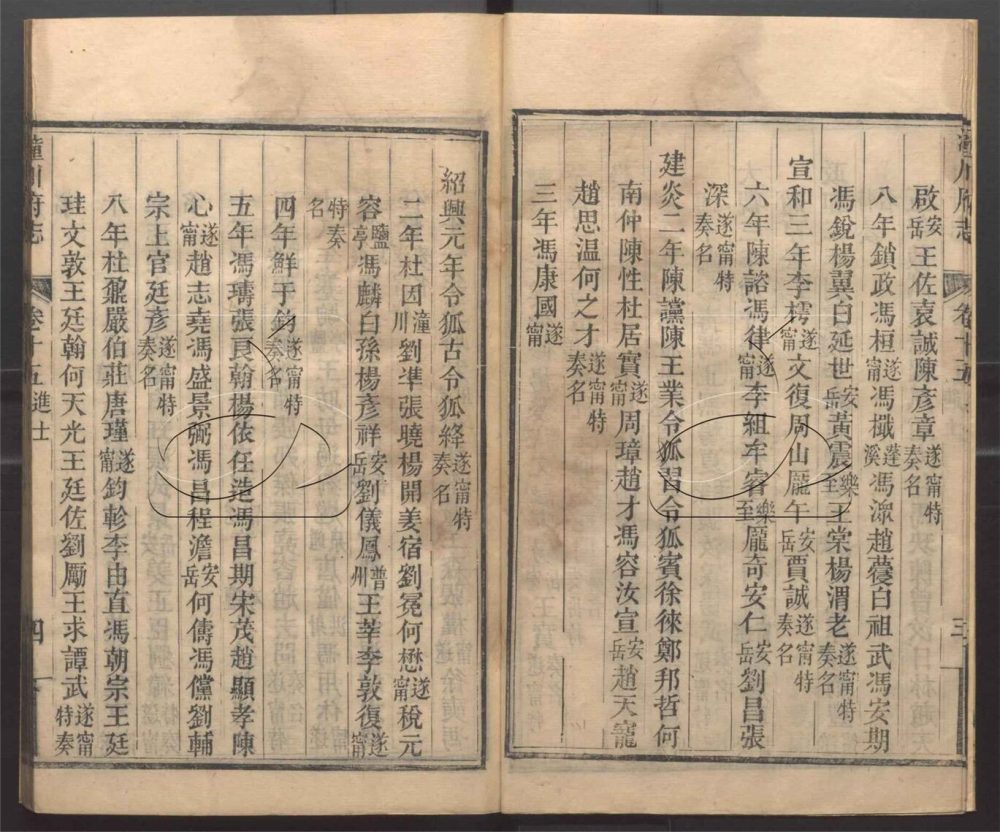 潼川府志
卷十五
三
啟安岳王佐袁誠陳彥章遂甯特奏名
八年鎖政馮桓遂甯馮檝蓬溪馮瀠趙夔白祖武馮安期
馮銳楊翼白延世安岳黃震樂至王棠楊渭老遂甯特奏名
宣和三年李樗遂甯文復周山龐午安岳賈誠遂甯特奏名
六年陳諮馮律遂甯李組牟睿樂至龐奇安仁安岳劉昌張
深遂甯特奏名
建炎二年陳讜陳王業令狐習令狐賓徐徠鄭邦哲何
南仲陳性杜居實遂甯周璋趙才馮容汝宣安岳趙天寵
趙思溫何之才遂甯特奏名
三年馮康國遂甯
紹興元年令狐古令狐絳遂甯特奏名
二年杜因潼川劉準張曉楊開姜宿劉冕何懋遂甯稅元
容鹽亭馮麟白孫楊彥祥安岳劉儀鳳普州王莘李敦復遂甯
特奏名
四年鮮于鈞遂甯特奏名
五年馮璹張良翰楊依任造馮昌期宋茂趙顯孝陳
心遂甯趙志堯馮盛景弼馮昌程澹安岳何儔馮儻劉輔
宗上官廷彥遂甯特奏名
八年杜鼐嚴伯莊唐瑾遂甯鈞軫李由直馮朝宗王廷
珪文敦王廷翰何天光王廷佐劉勵王求譚武遂甯特奏
潼川府志
卷十五 進士
四